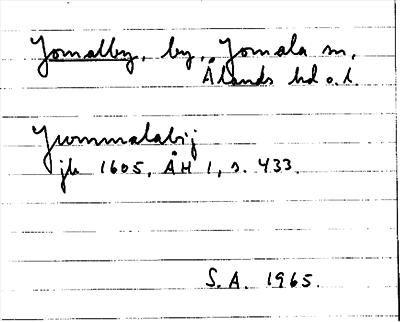 Jomalby, by, Jomala sn,
Ålands hd o. l.
Jwmmalabij
jb 1605, ÅH 1, s. 433.
S. A. 1965.